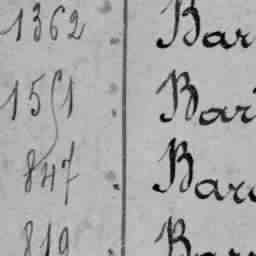 1362 . Bar
1551 . Bar
847 . Bar
819 . Bar